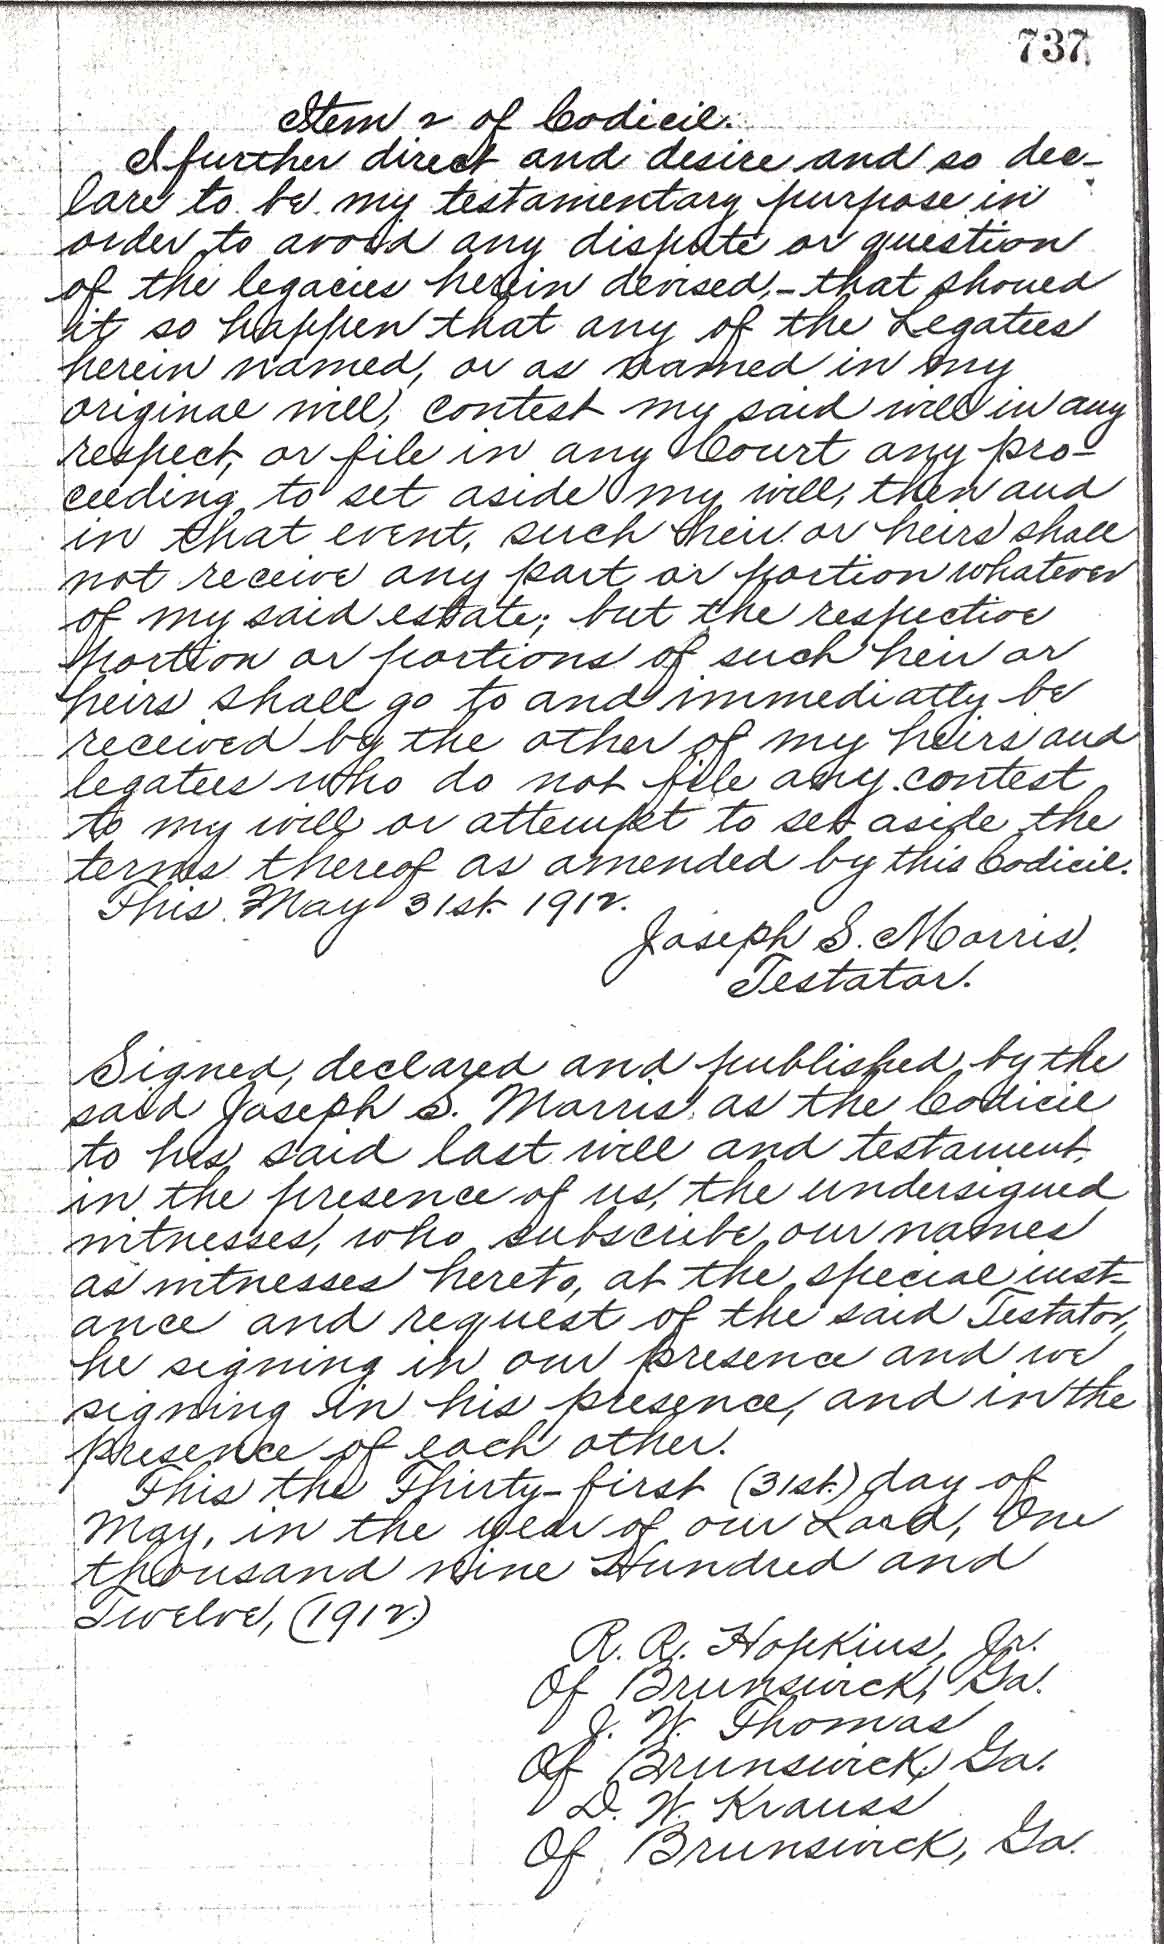 737
Item 2 of Codicil.
I further direct and desire and so dec-
lare to be my testamentary purpose in
order to avoid any dispute or question
of the legacies herein devised,- that should
it so happen that any of the Legatees
herein named, or as named in my
original will, contest my said will in any
respect, or file in any Court any pro-
ceeding to set aside my will, then and
in that event, such heir or heirs shall
not receive any part or portion whatever
of my said estate; but the respective
portion or portions of such heir or
heirs shall go to and immediatly be
received by the other of my heirs and
legatees who do not file any contest
to my will or attempt to set aside the
terms thereof as amended by this Codicil.
This May 31st. 1912.
Joseph S. Morris.
Testator.
Signed, declared and published by the
said Joseph S. Morris as the Codicil
to his said last will and testament,
in the presence of us, the undersigned
witnesses, who subscribe our names
as witnesses hereto, at the special inst-
ance and request of the said Testator,
he signing in our presence and we
signing in his presence, and in the
presence of each other.
This the Thirty-first (31st.) day of
May, in the year of our Lord, One
thousand nine Hundred and
Twelve, (1912.)
R. R. Hopkins, Jr.
Of Brunswick, Ga.
J. W. Thomas
Of Brunswick, Ga.
D. W. Krauss
Of Brunswick, Ga.